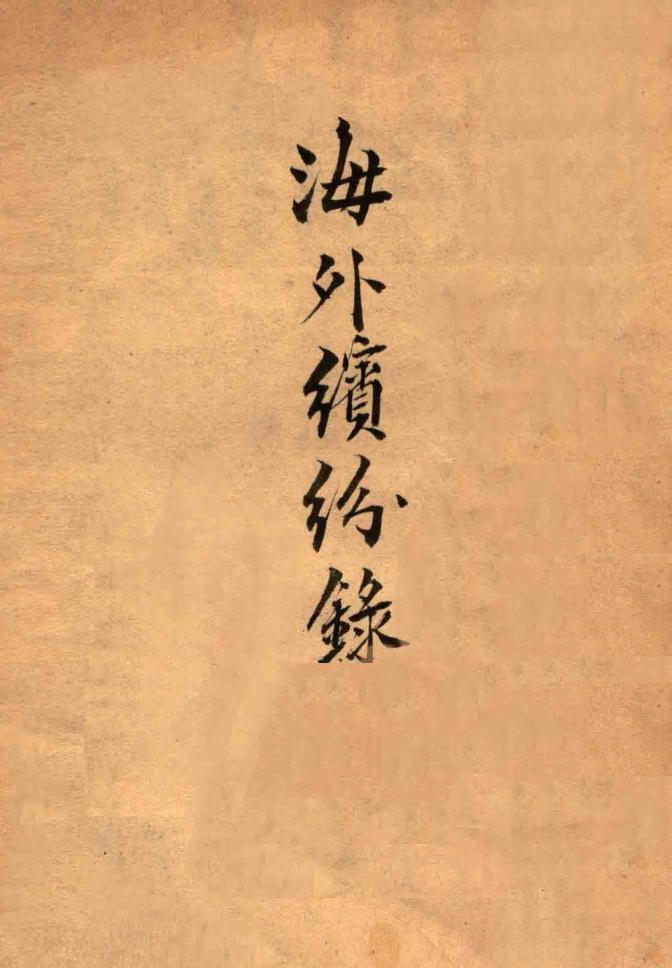 海外繽紛錄